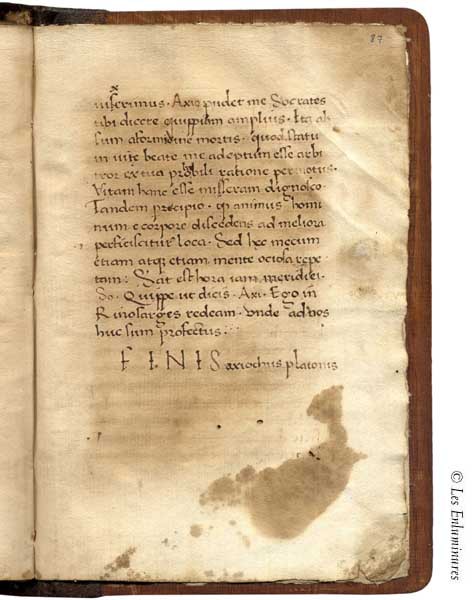 87
x
uixerimus. Axio. pudet me Socrates
tibi dicere quippiam amplius. Ita ab
sum a formidine mortis. quod statu
in uite beate me adeptum esse arbi
tror ex tua probili ratione permotus.
Vitam hanc esse misseram dignosco.
Tandem precipio. qp animus homi
num e corpore discedens ad meliora
perficiscitur loca. Sed hec mecum
etiam atq; etiam mente ociosa repe
tam: Sat est hora iam meridiei.
So. Quippe ut dicis. Axi. Ego in
Rinosarges redeam. unde ad uos
huc sum profectus:
FINIS axiochus platonis
© Les Enluminures